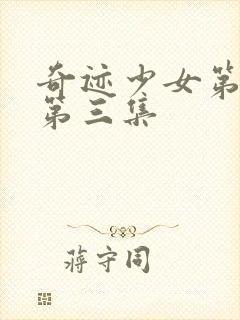 奇迹少女第
第三集
蒋守同